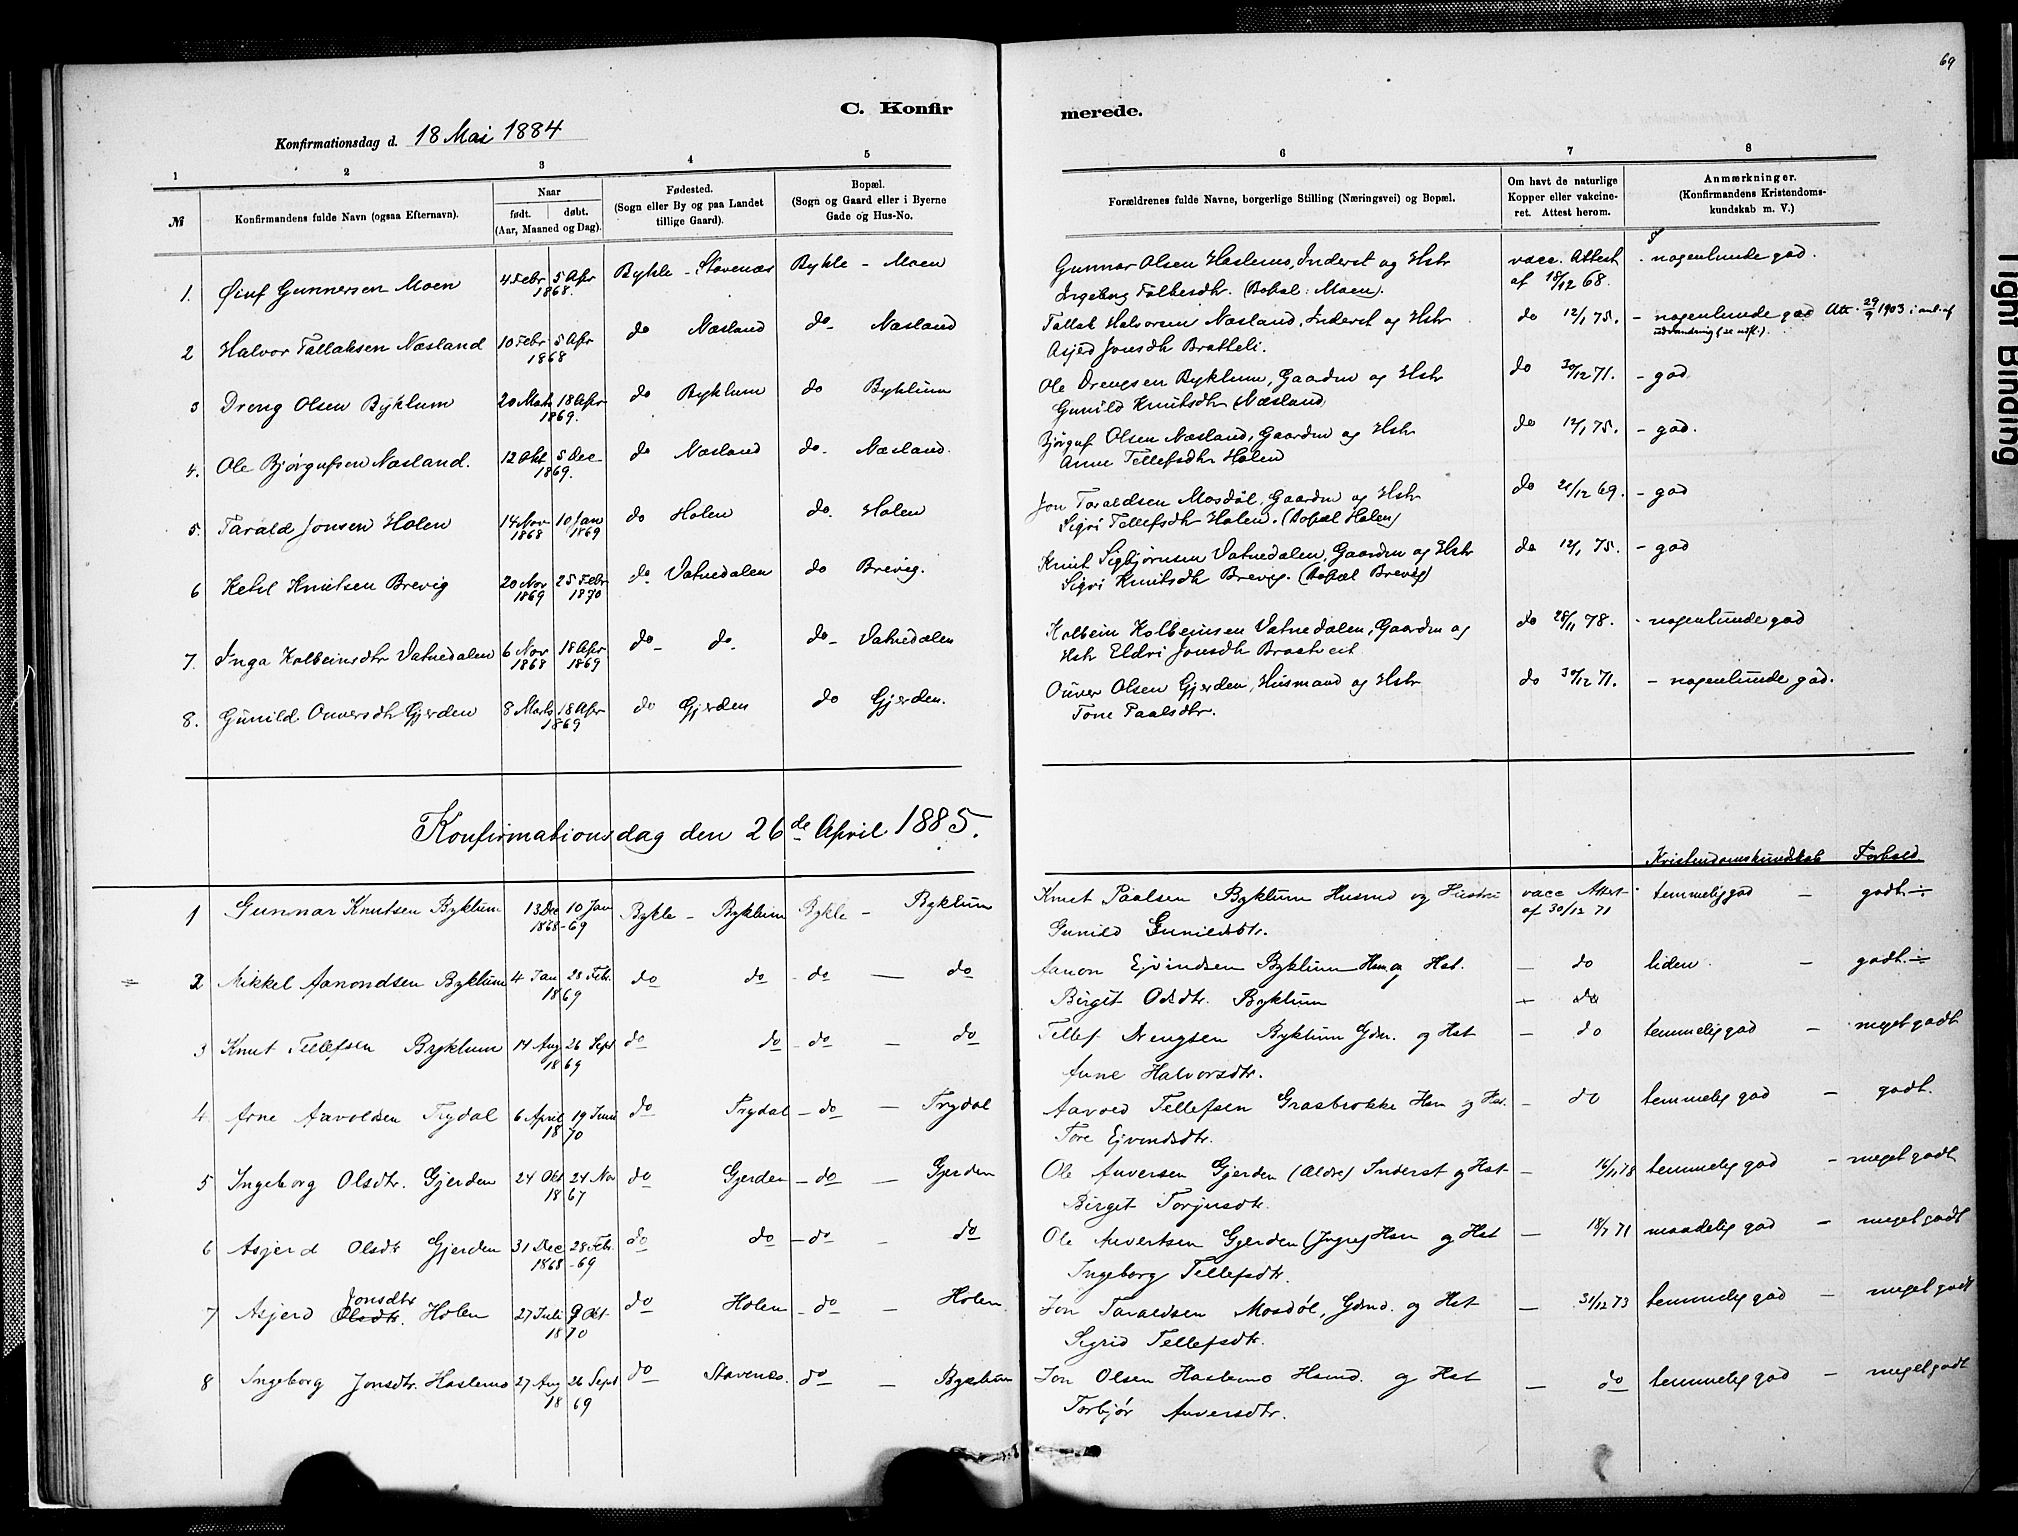 69
C. Konfir
merede.
Konfirmationsdag d. 18 Mai 1884
1 2 3 4 5 6 7 8
№
Konfirmandens fulde Navn (ogsaa Efternavn).
Naar
født. døbt.
(Aar, Maaned og Dag).
Fødested.
(Sogn eller By og paa Landet
tillige Gaard).
Bopæl.
(Sogn og Gaard eller i Byerne
Gade og Hus-No.
Forældrenes fulde Navne, borgerlige Stilling (Næringsvei) og Bopæl.
Om havt de naturlige
Kopper eller vakcine-
ret. Attest herom.
Anmærkninger.
(Konfirmandens Kristendoms-
kundskab m. V.)
1. Øiuf Gunnersen Moen 4 Febr 5 Apr 1868. Bykle - Stavenæs Bykle - Moen Gunnar Olsen Haslemo, Inderst og Hstr vacc. Attest - nogenlunde god.
Ingeborg Folkesdtr. (Bopæl: Moen). af 18/12 68.
2 Halvor Tallaksen Næsland 10 Febr 5 Apr 1868 do Næsland do - Næsland Tallak Halvorsen Næsland, Inderst og Hstr do 12/1 75. - nogenlunde god Att. 29/9 1903 i anl. af
Asjerd Jonsdtr Bratteli. udvandring (se udfl.).
3 Dreng Olsen Byklum 20 Mars 18 Apr 1869. do Byklum do Byklum Ole Drengsen Byklum, Gaardm og Hstr do 30/12 71. - god
Gunild Knutsdtr (Næsland)
4. Ole Bjørgufsen Næsland. 12 Okt 5 Dec 1869. do Næsland do. Næsland. Bjørguf Olsen Næsland, Gaardm og Hstr do 12/1 75. - god.
Anne Tellefsdtr Holen
5. Tarald Jonsen Holen 14 Nov 1868 10 Jan 1869 do Holen do. Holen Jon Taraldsen Mosdøl, Gaardm og Hstr do 21/12 69. - god
Sigri Tellefsdtr Holen. (Bopæl Holen)
6 Ketil Knutsen Brevig 20 Nov 1869 25 Febr 1870 do. Vatnedalen do Brevig. Knut Sigbjørnsen Vatnedalen, Gaardm og Hstr do 12/1 75. - god
Sigri Knutsdtr Brevig. (Bopæl Brevig)
7. Inga Kolbeinsdtr Vatnedalen 6 Nov 1868 18 Apr 1869 do - do. do - Vatnedalen Kolbein Kolbeinsen Vatnedalen, Gaardm og do 28/11 78. - nogenlunde god
Hstr Eldri Jonsdtr Bratveit
8. Gunild Ouversdtr Gjerden 8 Marts 18 Apr 1869 do Gjerden do Gjerden. Ouver Olsen Gjerden, Husmand og Hstr do 30/12 71. - nogenlunde god.
Tone Paalsdtr.
Konfirmationsdag den 26de April 1885.
Kristendomskundskab Forhold
1 Gunnar Knutsen Byklum 13 Dec 10 Jan 1868-69 Bykle - Byklum Bykle - Byklum Knut Paalsen Byklum Husmd og Hustru vacc Attest temmelig god - godt
Gunild Gunildsdtr. af 30/12 71
2 Mikkel Aanondsen Byklum 4 Jan 28 Feb. 1869 do do - do - do Aanon Ejvindsen Byklum Hsm og Hst. - do liden. - godt
Birgit Odsdtr. Byklum - do
3 Knut Tellefsen Byklum 14 Aug 26 Sept 1869 do do - do - do Tellef Drengsen Byklum Gdm. og Hst - do temmelig god - meget godt
Anne Halvorsdtr.
4 Arne Aavoldsen Trydal 6 April 19 Juni 1870 do Trydal - do - Trydal Aavold Tellefsen Grasbrokke Hsm og Hst. - do temmelig god - godt.
Tore Ejvindsdtr.
5 Ingeborg Olsdtr. Gjerden 24 Okt 24 Nov 1867 do Gjerden - do - Gjerden Ole Auversen Gjerden (Aldre) Inderst og Hst - 16/11 78 temmelig god - meget godt
Birgit Torjusdtr.
6 Asjerd Olsdtr Gjerden 31 Dec 28 Feb. 1868-69 do do - do - do Ole Auvertsen Gjerden (Yngre) Hsm og Hst - 18/7 71 maadelig god - meget godt
Ingeborg Tellefsdtr.
Jonsdtr
7 Asjerd Olsdtr. Holen 27 Juli 9 Okt 1870 do Holen - do - Holen. Jon Taraldsen Mosdøl, Gdmd. og Hst - 31/12 73 temmelig god - meget godt
Sigrid Tellefsdtr.
8 Ingeborg Jonsdtr. Haslemo 27 Aug 26 Sept 1869 do Stavenes. do - Byklum Jon Olsen Haslemo Hsmd. og Hst - do temmelig god - meget godt
Torbjør Auversdtr.
Tight Binding